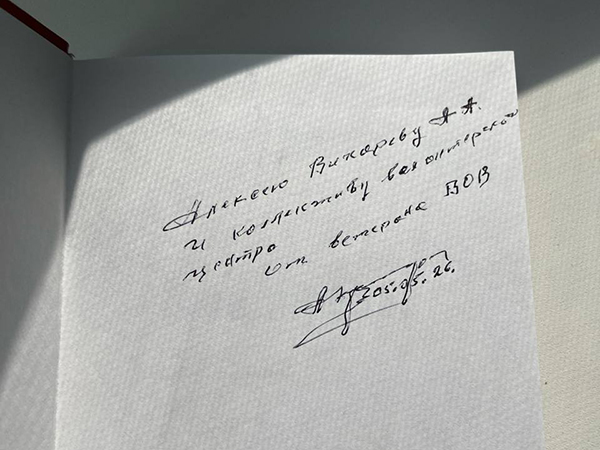 Алексею Вихареву А А.
и коллективу волонтерского
центра
от ветерана ВОВ
05.05.26.